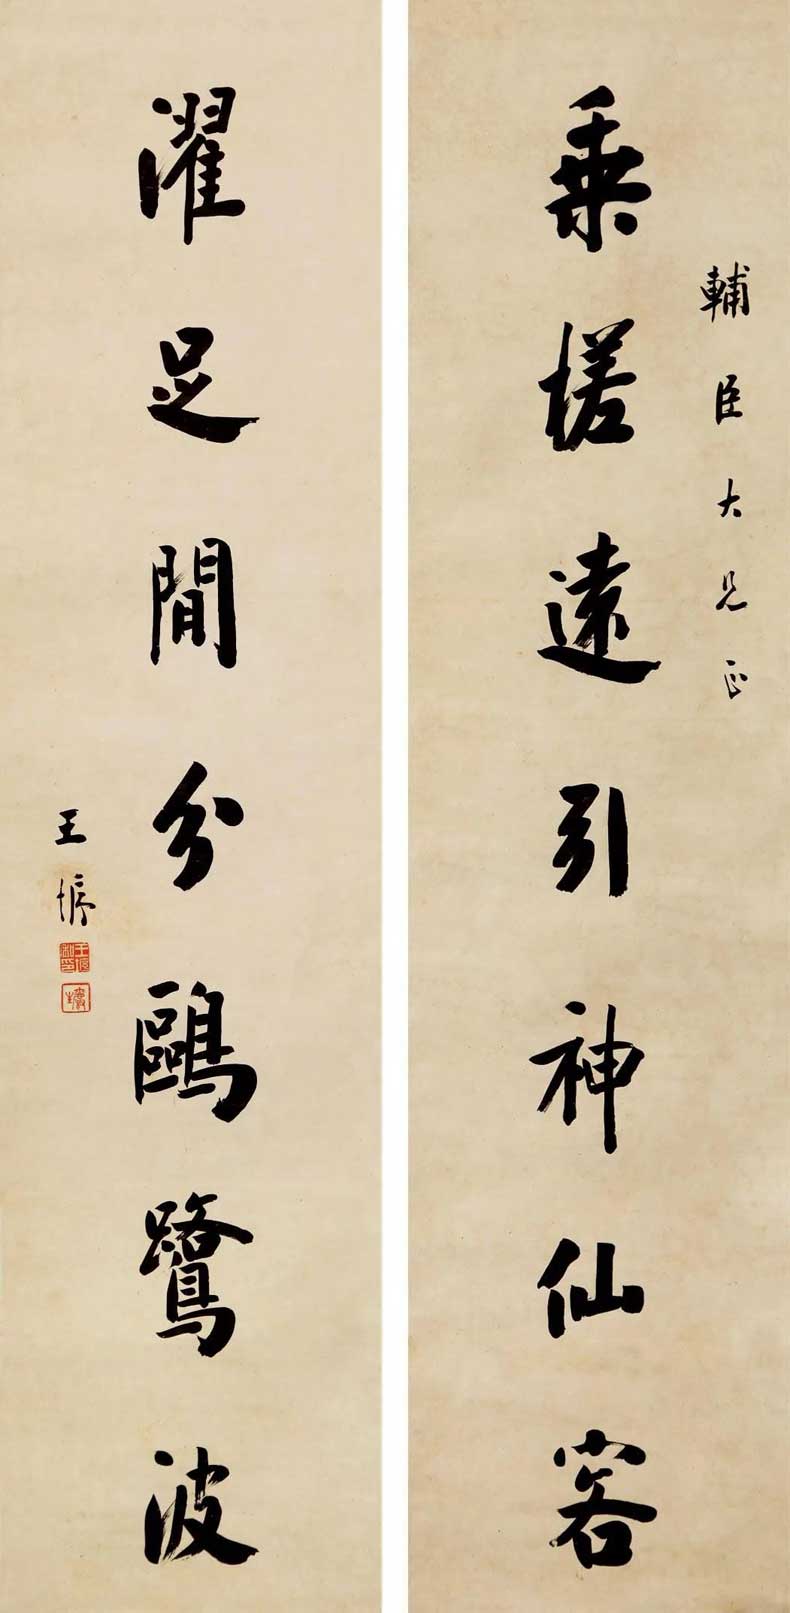 輔臣大兄正
乘槎遠引神仙客
濯足閒分鷗鷺波
王垿